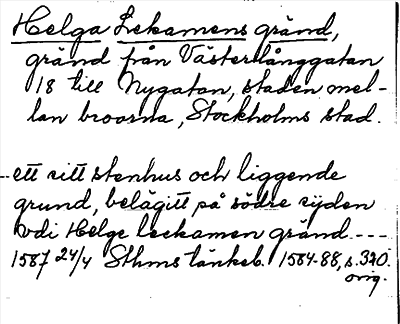 Helga Lekamens gränd,
gränd från Västerlånggatan
18 till Nygatan, staden mel-
lan broarna, Stockholms stad.
--ett sitt stenhus och liggende
grund, belägitt på södre sijden
vdi Helge leckamen gränd ----
1587 24/4 Sthms tänkeb. 1584-88, s. 320
orig.